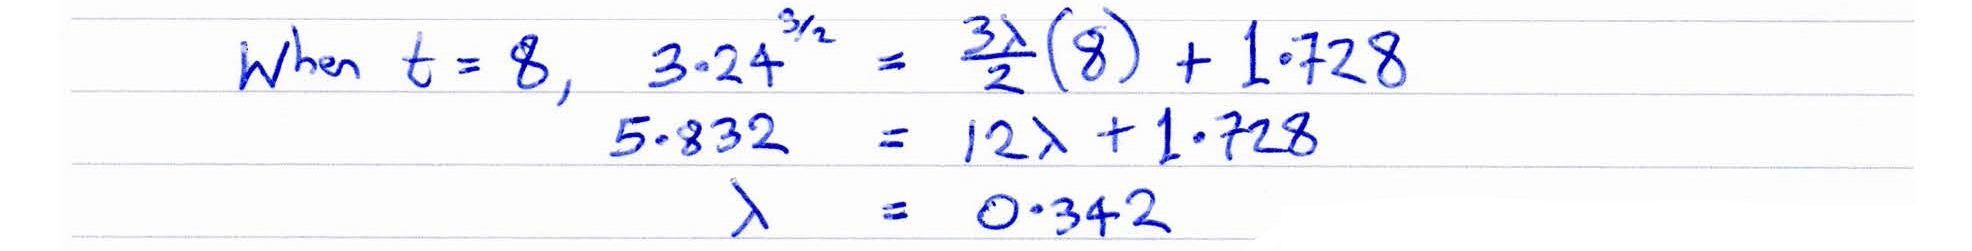 When t = 8, 3.24^{3/2} = \frac{3λ}{2}(8) + 1.728
5.832 = 12λ + 1.728
λ = 0.342